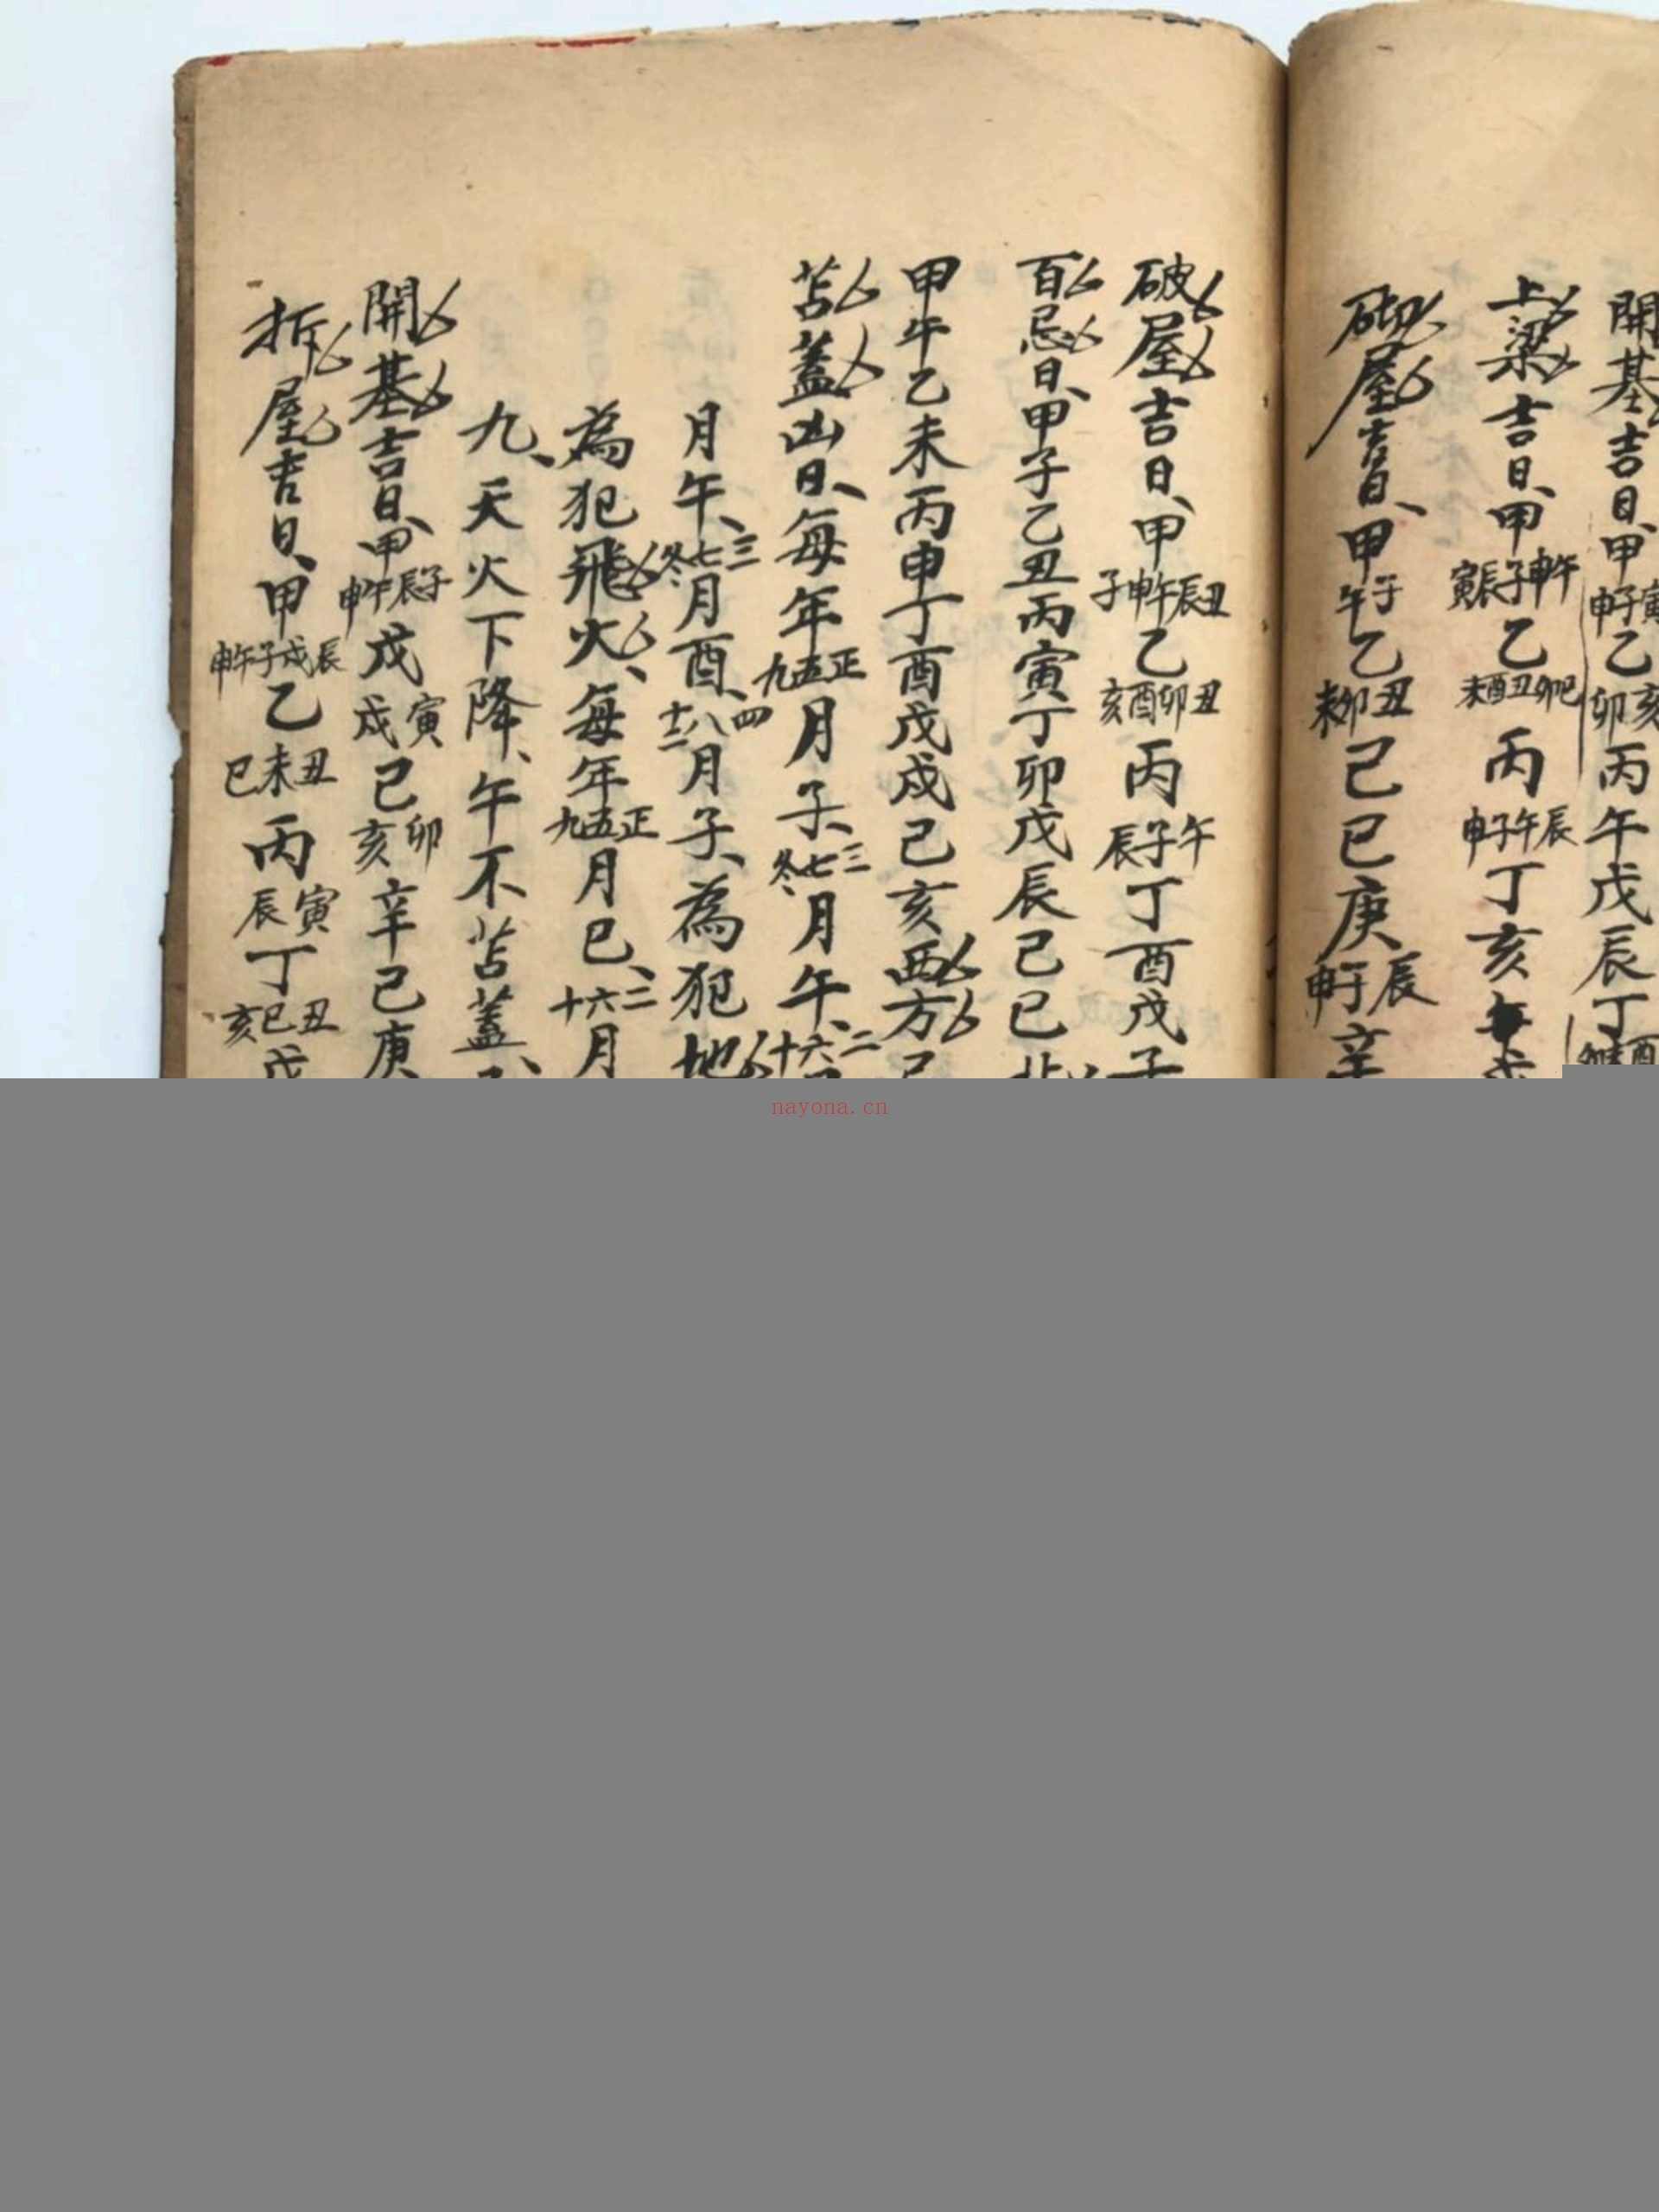 開基吉日、甲寅子申乙亥卯丙午戊辰丁酉
上梁吉日、甲午申子辰寅乙巳卯丑酉未丙辰午子申丁亥
砌屋吉日、甲子午乙丑卯未己巳庚辰子申辛
破屋吉日、甲丑辰午申子乙丑卯酉亥丙午子辰丁酉戊子
百忌日、甲子乙丑丙寅丁卯戊辰己巳北
甲午乙未丙申丁酉戊戌己亥西方己
苫蓋凶日、每年正五九月子、三七冬月午、二六十月
月午、三七冬月酉、四八十二月子、為犯地
為犯飛火、每年正五九月巳、二六十月
九、天火下降、午不苫蓋、
開基吉日、甲子辰午申戊寅戌己卯亥辛己庚
拆屋吉日、甲辰戌子午申乙丑未巳丙寅辰丁丑巳亥戊
nayona.cn